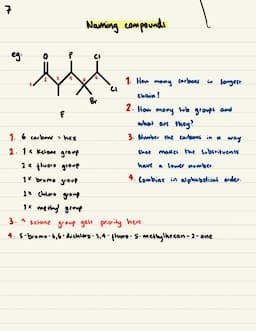 7
Naming compounds
eg.
O
F
Cl
1
2
3
4
5
6
Cl
Br
F
1. How many carbons in longest
chain?
2. How many sub groups and
what are they?
3. Number the carbons in a way
that makes the substituents
have a lower number.
4. Combine in alphabetical order.
1. 6 carbons = hex
2. 1x ketone group
2x fluoro group
1x bromo group
2x chloro group
1x methyl group
3. ketone group gets priority here.
4. 5-bromo-6,6-dichloro-3,4-fluoro-5-methylhexan-2-one